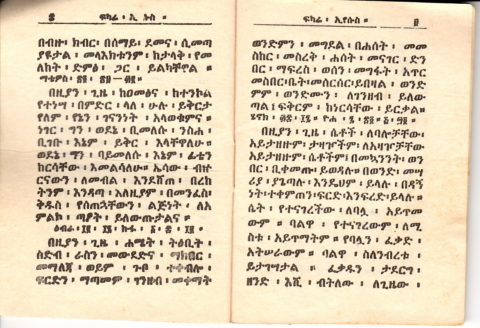 ፍካሬ ፡ ኢ ሱስ ።
በብዙ ፡ ክብር ፡ በሰማይ ፡ ደመና ፡ ሲመጣ
ያዩታል ፡ መላእክቱንም ፡ ከታላቅ ፡ የመ
ለከት ፡ ድምፅ ፡ ጋር ፡ ይልካቸዋል ።
በዚያን ፡ ጊዜ ፡ ከዐመፅና ፡ ከተንኮል
የተነሣ ፡ በምድር ፡ ላይ ፡ ሁሉ ፡ ይቅርታ
የለም ፡ የኔን ፡ ገናንነት ፡ አላወቁምና ።
ነገር ፡ ግን ፡ ወደኔ ፡ ቢመለሱ ፡ ንስሐ
ቢገቡ ፡ እኔም ፡ ይቅር ፡ እላቸዋለሁ ።
ወደኔ ፡ ግን ፡ ባይመለሱ ፡ እኔም ፡ ፊቴን
ከርሳቸው ፡ እመልሳለሁ ።
ትናውን ፡ ለመብል ፡ እንደሸጠ ፡ በረከ
ትንም ፡ እንዳጣ ፡ እሊዚያም ፡ በመንፈስ
ቅዱስ ፡ የሰጠኋቸውን ፡ ልጅነት ፡ ለአ
ምልኮ ፡ ጣዖት ፡ ይለውጡታልና ።
በዚያን ፡ ጊዜ ፡ ሐሜት ፡ ትዕቢት
ስድብ ፡ ራስን ፡ መውደድና ፡ ማክበር
ማመለጃ ፡ ወይም ፡ ጉቦ ፡ ተቀብሎ ፡
ፍርድን ፡ ማጣመም ፡ ገንዘብ ፡ መቀማት
ፍካሬ ፡ ኢየሱስ ።
ወንድምን ፡ መግደል ፡ በሐሰት ፡ መመ
ስከር ፡ መስረቅ ፡ ሐሰት ፡ መናገር ፡ ድን
በር ፡ ማፍረስ ፡ ወሰን ፡ መግፋት ፡ አጥር
መስበር ፡ ቤት ፡ መሰርሰር ፡ ይበዛል ። ወንድ
ምም ፡ ወንድሙን ፡ ለገንዘብ ፡ ይለው
ጣል ፤ ፍቅርም ፡ ከነርሳቸው ፡ ይርቃል ።
በዚያን ፡ ጊዜ ፡ ሴቶች ፡ ለባሎቻቸው ፡
አይታዘዙም ፡ ታዛዦችም ፡ ለአዛዦቻቸው
አይታዘዙም ፡ ሴቶችም ፤ በመኳንንት ፡ ወን
በር ፡ ይቀመጡ ፡ ይወዳሉ ።
ነት ፡ ተቀምጠን ፡ ፍርድ ፡ እንፍረድ ፡ ይላሉ ።
ሴት ፡ የተናገረችው ፡ ለባሏ ፡ አይጥመ
ውም ። ባልዋ ፡ የተናገረውም ፡ ለሚ
ስቱ ፡ አይጥማትም ። የባሏን ፡ ፈቃድ
አትሠራውም ። ባልዋ ፡ ስለንብረቱ ፡
ይታገሣታል ። ፈቃዱን ፡ ታደርግ ፡
ዘንድ ፡ እሺ ፡ ብትለው ፡ ለጊዜው ፡